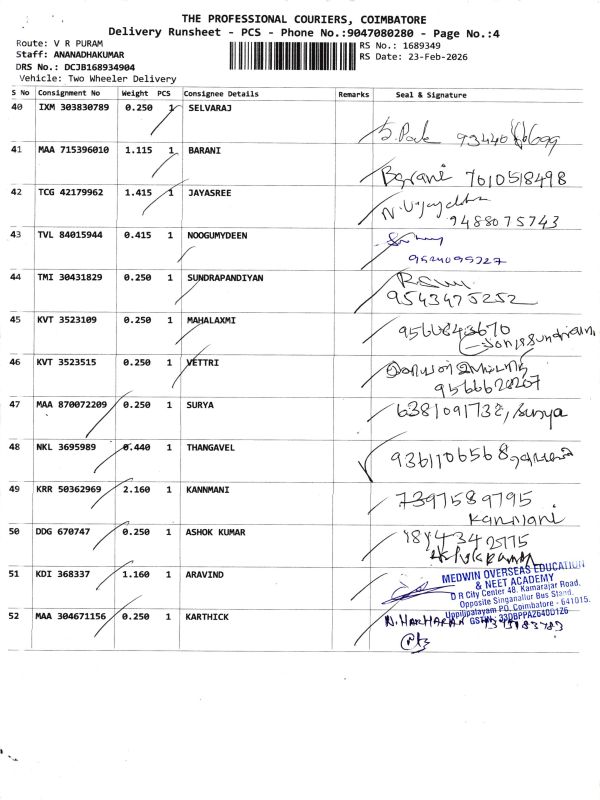 THE PROFESSIONAL COURIERS, COIMBATORE
Delivery Runsheet - PCS - Phone No.:9047080280 - Page No.:4
Route: V R PURAM
RS No.: 1689349
Staff: ANANADHAKUMAR
RS Date: 23-Feb-2026
DRS No.: DCJB168934904
Vehicle: Two Wheeler Delivery
S No Consignment No Weight PCS Consignee Details Remarks Seal & Signature
40 IXM 303830789 0.250 1 SELVARAJ
41 MAA 715396010 1.115 1 BARANI
Barani 7010518498
42 TCG 42179962 1.415 1 JAYASREE
9488075743
43 TVL 84015944 0.415 1 NOOGUMYDEEN
44 TMI 30431829 0.250 1 SUNDRAPANDIYAN
9543475252
45 KVT 3523109 0.250 1 MAHALAXMI
9560843670
46 KVT 3523515 0.250 1 VETTRI
47 MAA 870072209 0.250 1 SURYA
6381091732, Surya
48 NKL 3695989 0.440 1 THANGAVEL
9361106568
49 KRR 50362969 2.160 1 KANNMANI
7397589795
Kanmani
50 DDG 670747 0.250 1 ASHOK KUMAR
51 KDI 368337 1.160 1 ARAVIND
MEDWIN OVERSEAS EDUCATION
& NEET ACADEMY
D R City Center 48, Kamarajar Road,
Opposite Singanallur Bus Stand,
Uppilipalayam PO, Coimbatore - 641015.
GSTIN: 33DBPPA2640D1Z6
52 MAA 304671156 0.250 1 KARTHICK
N. HARIHARAN